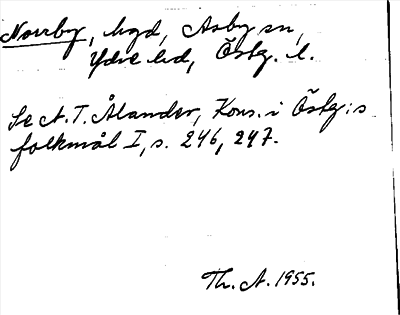 Norrby, bgd, Asby sn,
Ydre hd, Östg. l.
Se A. T. Ålander, Kons. i Östg:s
folkmål I, s. 246, 247.
Th. A. 1955.